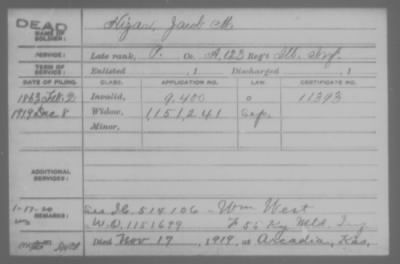 DEAD
NAME OF SOLDIER: Jacob M.
SERVICE: Late rank, P. Co. A, 123 Reg't Ill. Inf.
TERM OF SERVICE: Enlisted , 1 Discharged , 1
DATE OF FILING. CLASS. APPLICATION NO. LAW. CERTIFICATE NO.
1863 Feb. 2 Invalid, 9,400 o 11393
1919 Dec 8 Widow, 1151,241
Minor,
ADDITIONAL SERVICES:
1-17-20
REMARKS: 514106 - Wm West
W.O. 1151699 F 55 Ky Mtd. Inf
Died Nov 17, 1919, at Arcadia, Kas.